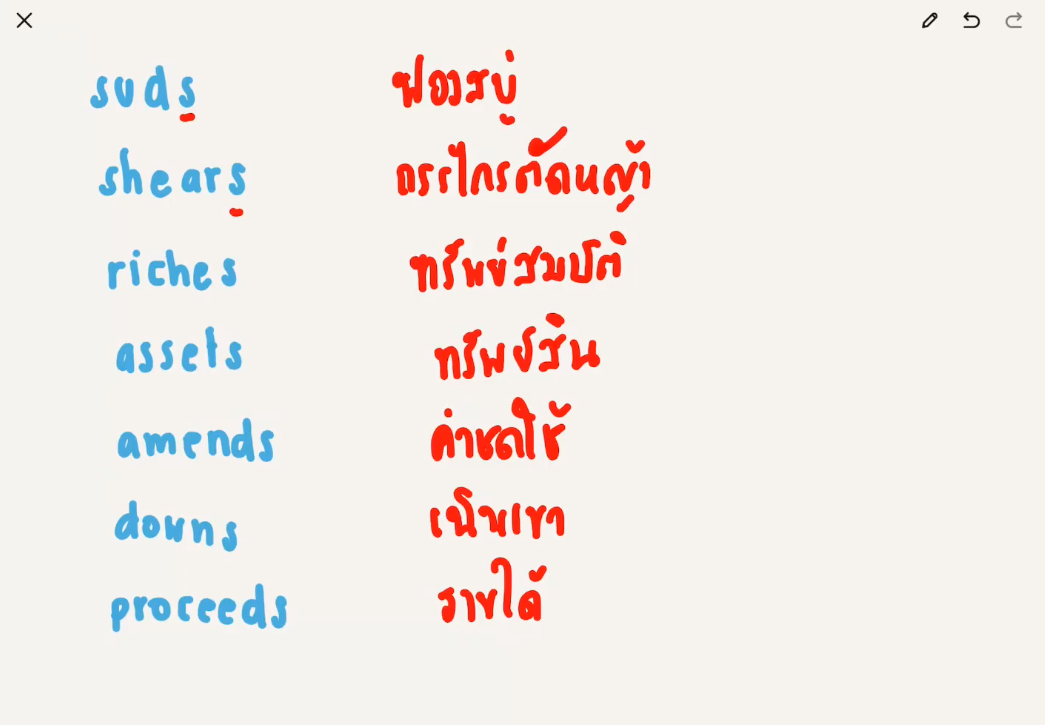 suds ฟองสบู่
shears กรรไกรตัดหญ้า
riches ทรัพย์สมบัติ
assets ทรัพย์สิน
amends ค่าชดใช้
downs เนินเขา
proceeds รายได้